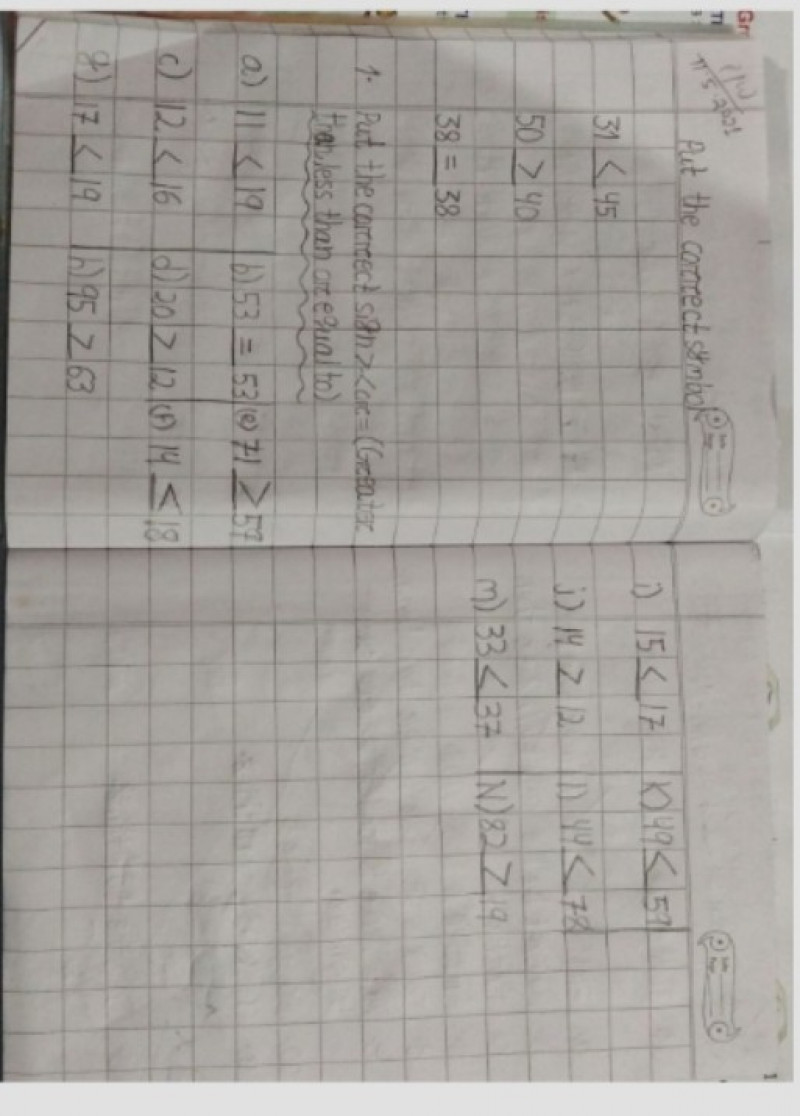 H.W
Put the correct symbol
31 < 45
50 > 40
38 = 38
1. Put the correct sign > < or = (Greater
than, less than or equal to)
a) 11 < 19 b) 53 = 53 (e) 71 > 57
c) 12 < 16 d) 20 > 12 (f) 14 < 18
g) 17 < 19 h) 95 > 63
i) 15 < 17 k) 49 < 57
j) 14 > 12 l) 44 < 78
m) 33 < 37 N) 82 > 19